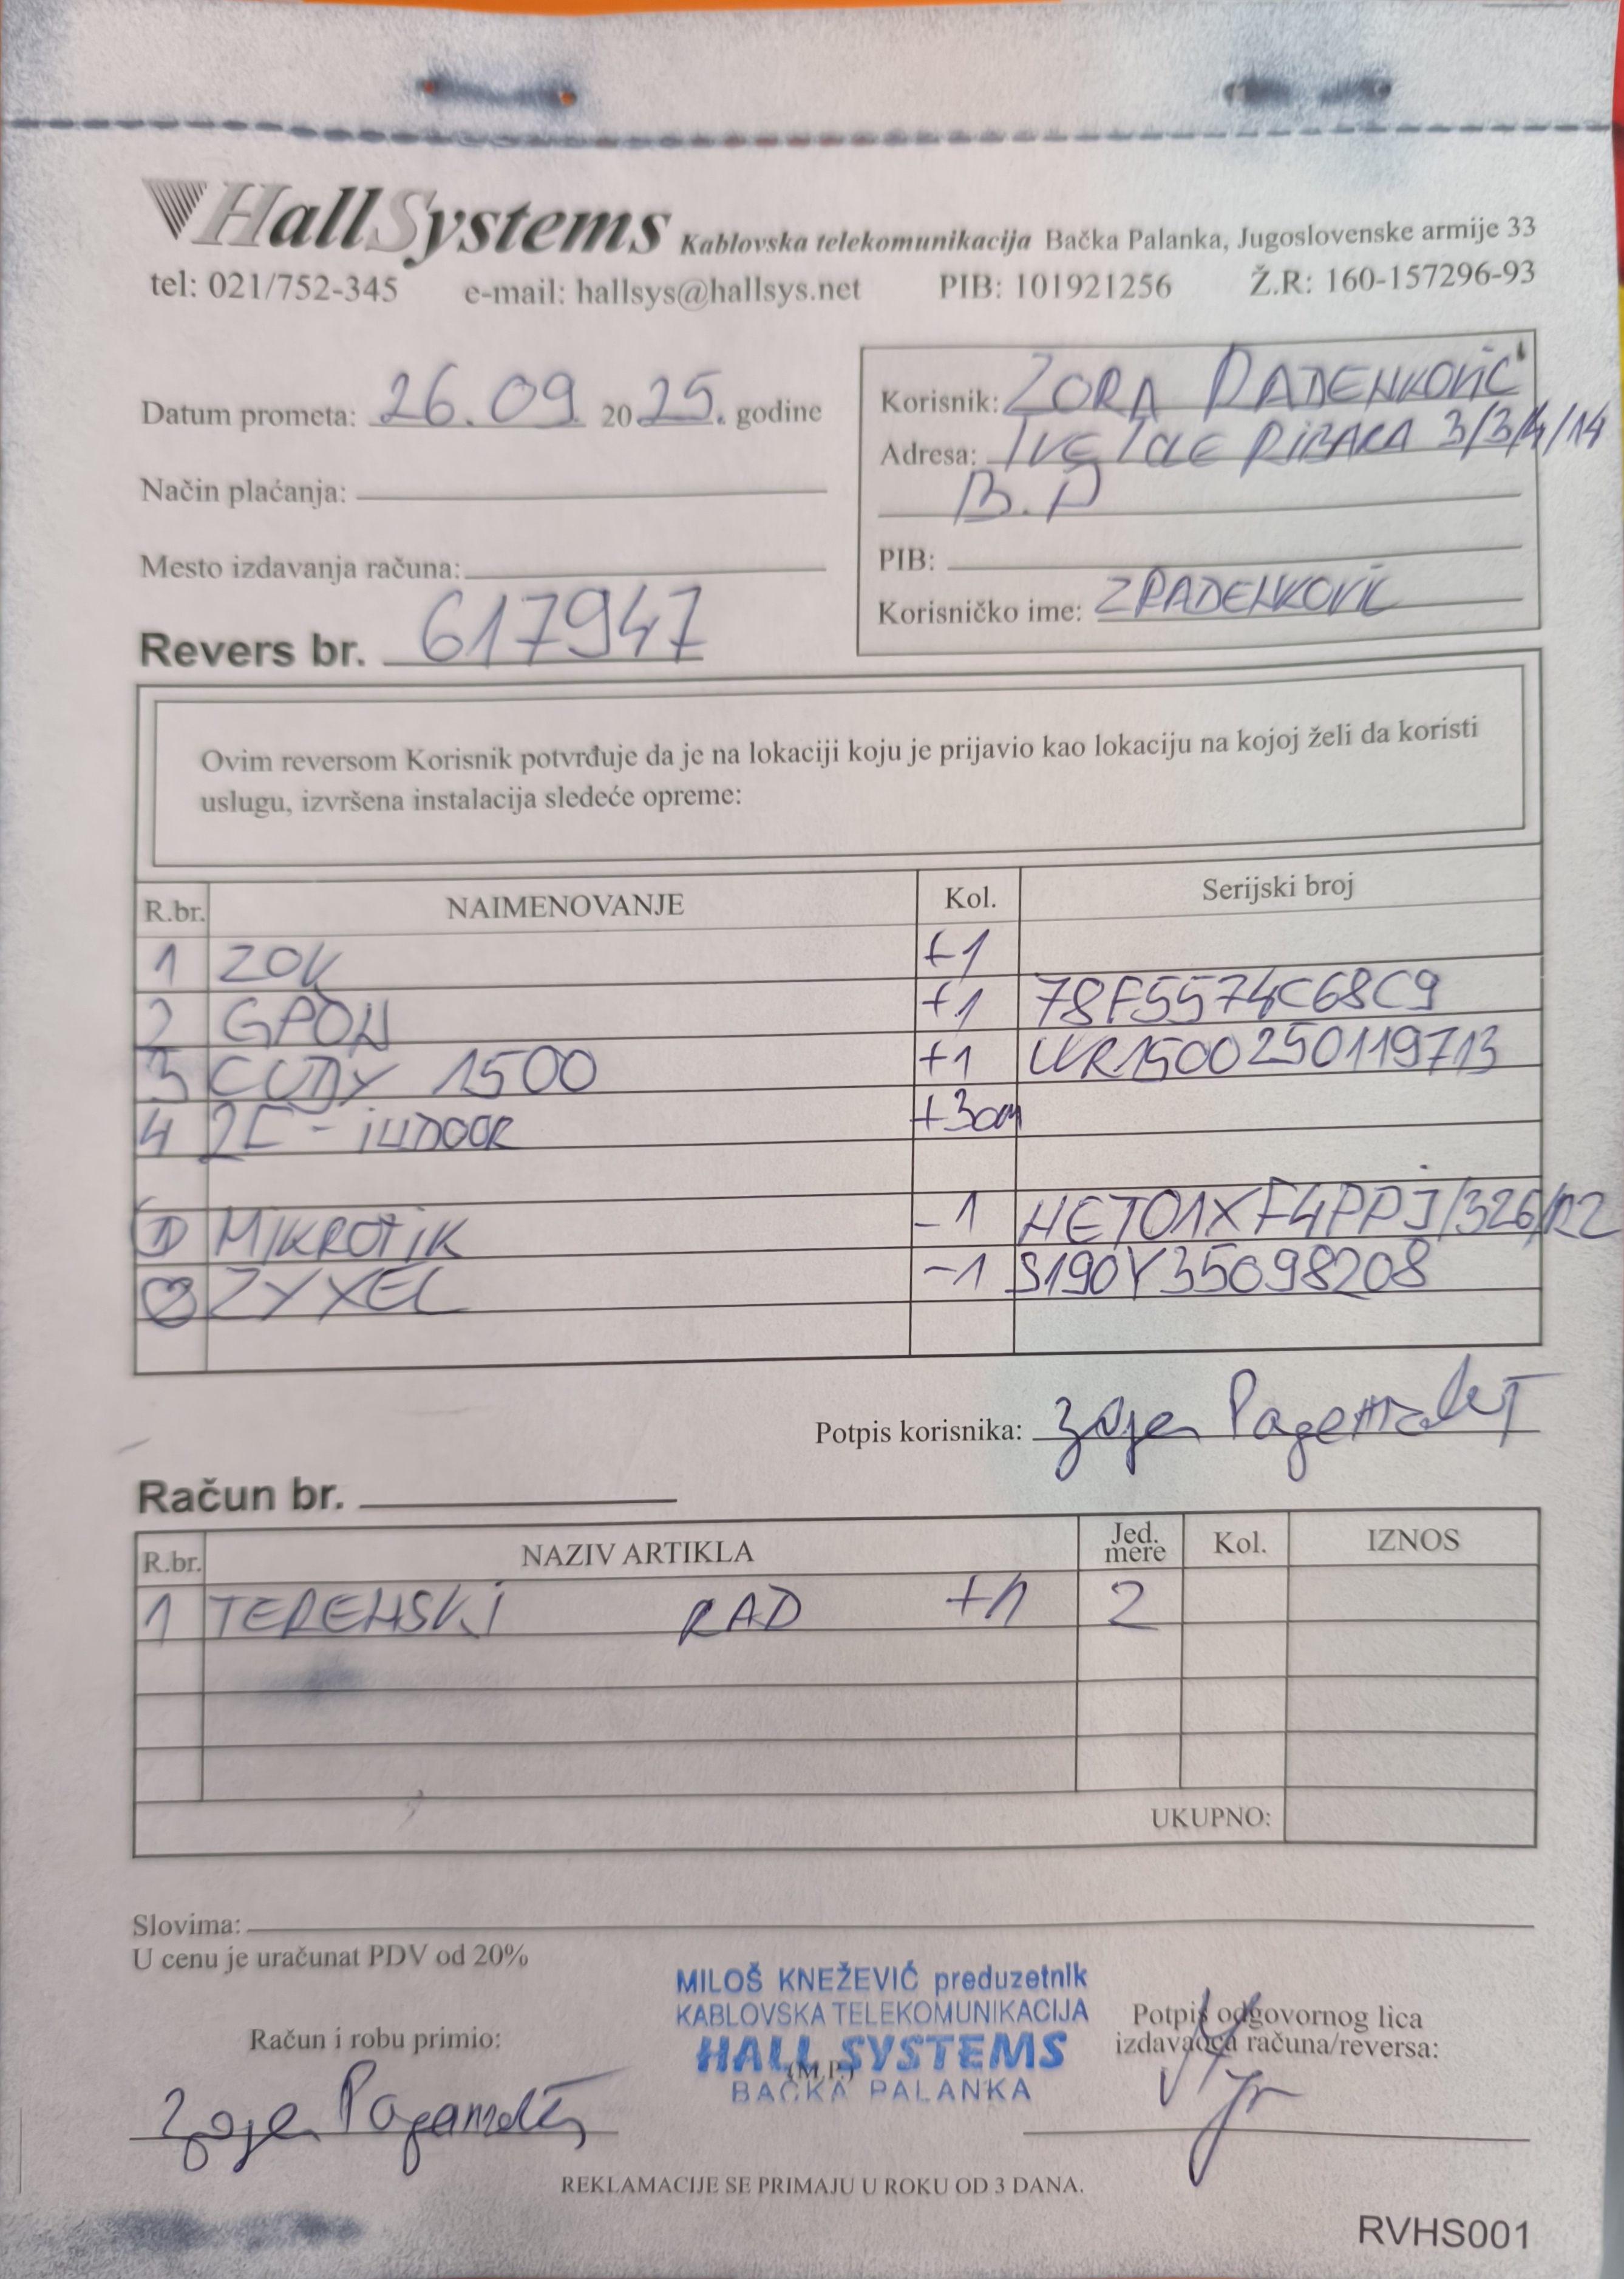 HallSystems Kablovska telekomunikacija Bačka Palanka, Jugoslovenske armije 33
tel: 021/752-345 e-mail: hallsys@hallsys.net PIB: 101921256 Ž.R: 160-157296-93
Datum prometa: 26.09 2025. godine
Način plaćanja:
Mesto izdavanja računa:
Revers br. 617947
Korisnik: ZORA RADENKOVIĆ
Adresa: RIBARA 3/3/4/14
B.P
PIB:
Korisničko ime: ZRADENKOVIC
Ovim reversom Korisnik potvrđuje da je na lokaciji koju je prijavio kao lokaciju na kojoj želi da koristi
uslugu, izvršena instalacija sledeće opreme:
R.br. NAIMENOVANJE Kol. Serijski broj
1 ZOK +1
2 GPON +1 78F5574C68C9
3 CUDY 1500 +1 WR1500250119713
4 2C - INDOOR +30m
1 MIKROTIK -1 HET01XF4PPJ/326/R2
2 ZYXEL -1 S190Y35098208
Potpis korisnika:
Račun br.
R.br. NAZIV ARTIKLA Jed. mere Kol. IZNOS
1 TERENSKI RAD +1 2
UKUPNO:
Slovima:
U cenu je uračunat PDV od 20%
MILOŠ KNEŽEVIĆ preduzetnik
KABLOVSKA TELEKOMUNIKACIJA
HALL SYSTEMS
(M.P.)
BAČKA PALANKA
Račun i robu primio:
Potpis odgovornog lica
izdavaoca računa/reversa:
REKLAMACIJE SE PRIMAJU U ROKU OD 3 DANA.
RVHS001